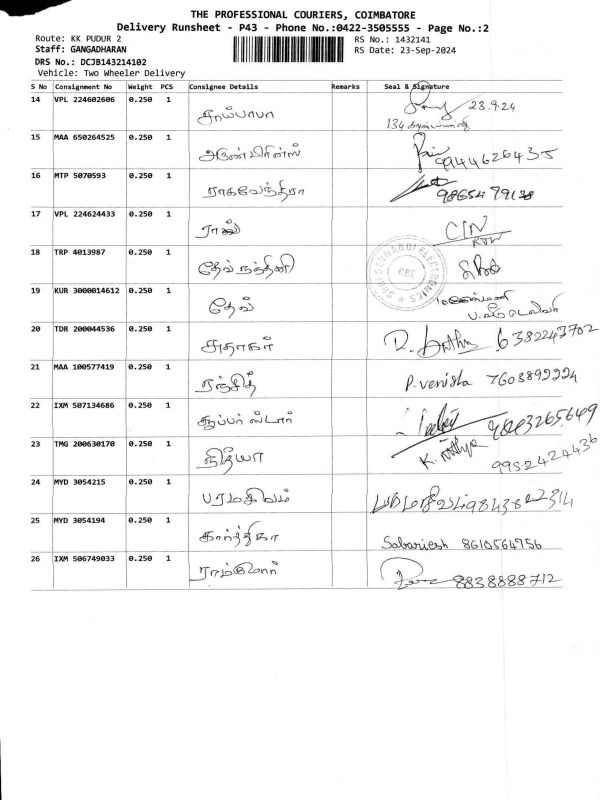 THE PROFESSIONAL COURIERS, COIMBATORE
Delivery Runsheet - P43 - Phone No.:0422-3505555 - Page No.:2
Route: KK PUDUR 2
RS No.: 1432141
Staff: GANGADHARAN
RS Date: 23-Sep-2024
DRS No.: DCJB143214102
Vehicle: Two Wheeler Delivery
S No Consignment No Weight PCS Consignee Details Remarks Seal & Signature
14 VPL 224602606 0.250 1 சாய்பாபா 23.9.24
134
15 MAA 650264525 0.250 1 அருண் பிரின்ஸ் 9944626435
16 MTP 5070593 0.250 1 ராகவேந்திரா 9865479138
17 VPL 224624433 0.250 1 ராஜ்
18 TRP 4013987 0.250 1 தேவ் நந்தினி
SHRI GURUNANDI ELECTRONICS CBE
19 KUR 3000014612 0.250 1 தேவ்
20 TDR 200044536 0.250 1 அதாகர் 6382243702
21 MAA 100577419 0.250 1 ரஞ்சித் P. venisha 7603899994
22 IXM 507134686 0.250 1 சூப்பர் ஸ்டார்
23 TMG 200630170 0.250 1 நித்யா K. nithya 9952424436
24 MYD 3054215 0.250 1 பரமசிவம்
25 MYD 3054194 0.250 1 கார்த்திகா Sabariesh 8610564956
26 IXM 506749033 0.250 1 ராம்கிஷோர் 8838888712